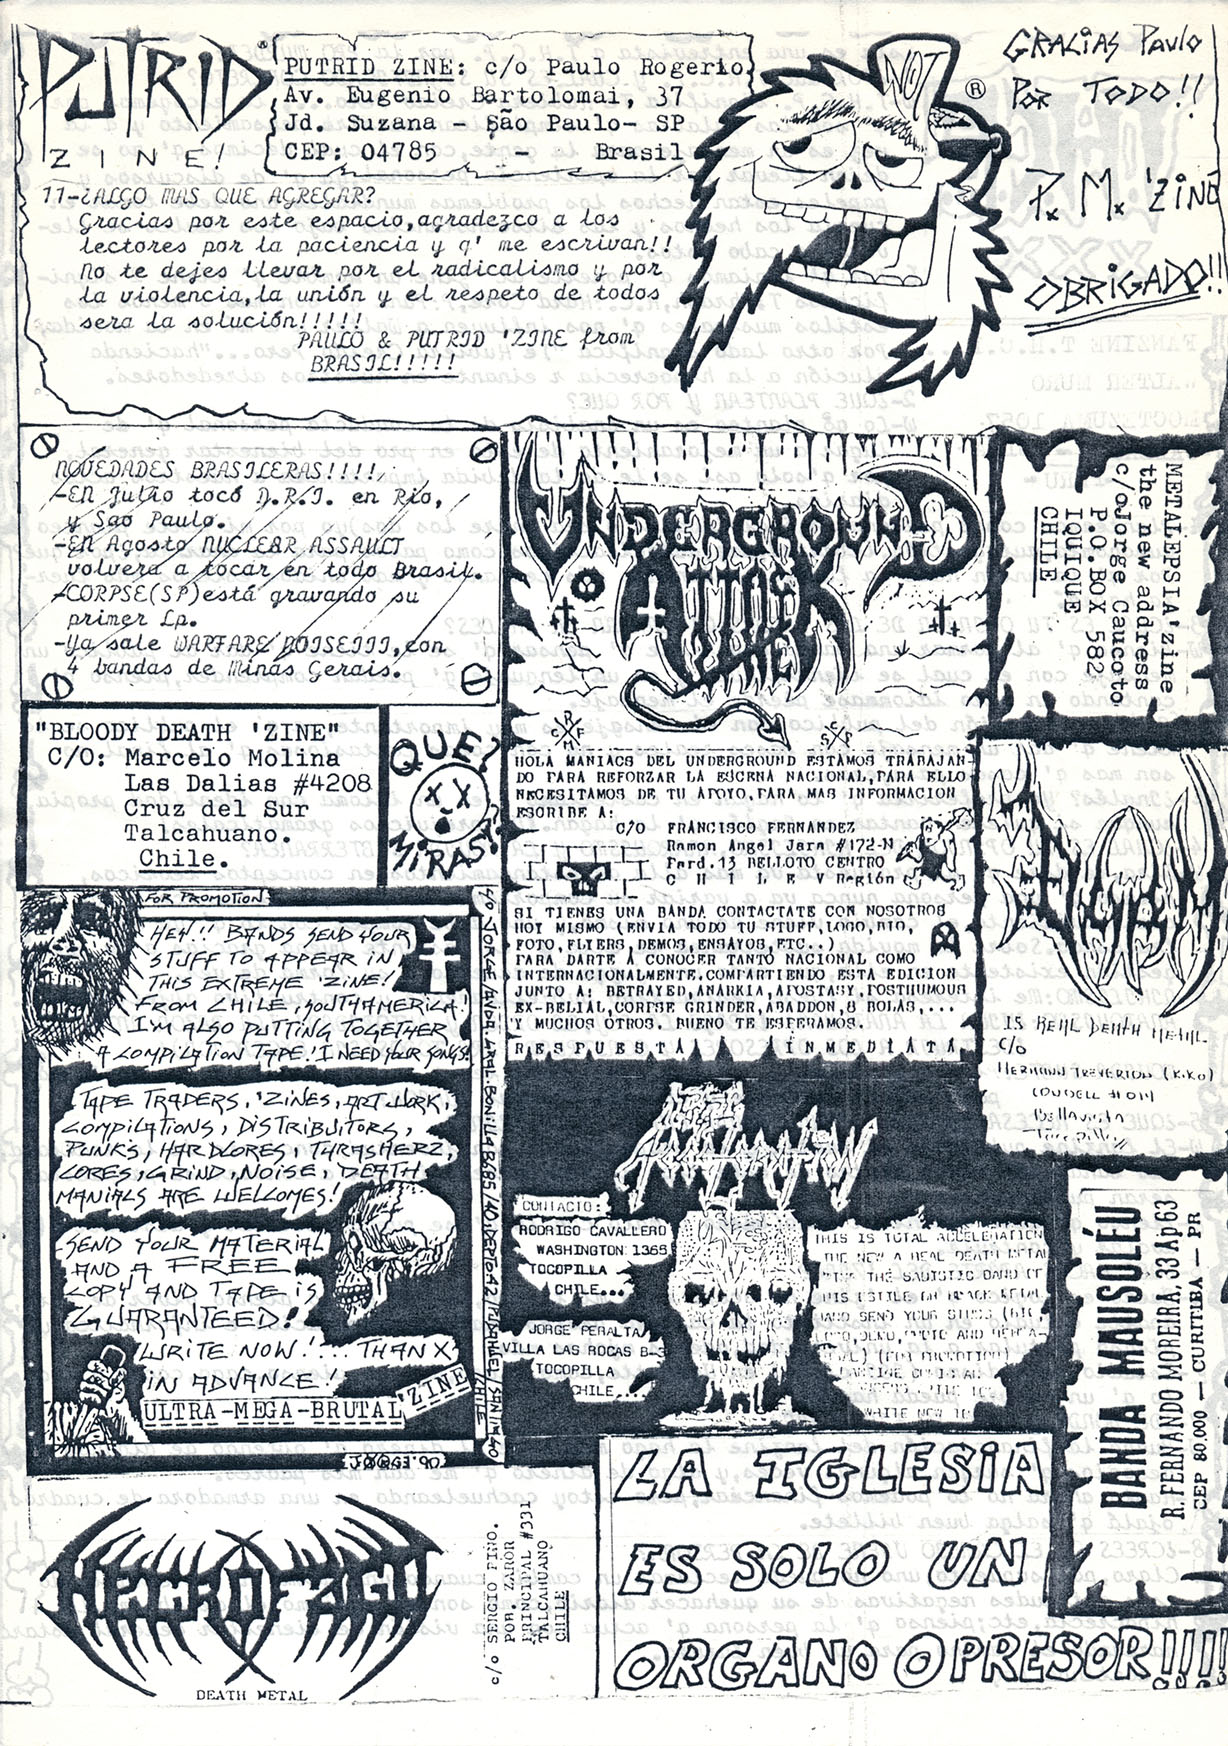 PUTRID
ZINE!
PUTRID ZINE: c/o Paulo Rogerio
Av. Eugenio Bartolomai, 37
Jd. Suzana - São Paulo- SP
CEP: 04785 - Brasil
NOT
®
GRACIAS PAULO
POR TODO!!
P.M. 'ZINE
OBRIGADO!!
11-¿ALGO MAS QUE AGREGAR?
Gracias por este espacio,agradezco a los
lectores por la paciencia y q' me escrivan!!
No te dejes llevar por el radicalismo y por
la violencia,la unión y el respeto de todos
sera la solución!!!!!
PAULO & PUTRID 'ZINE from
BRASIL!!!!!
NOVEDADES BRASILERAS!!!!
-EN Julio tocó D.R.I. en Rio,
y Sao Paulo.
-EN Agosto NUCLEAR ASSAULT
volvera a tocar en todo Brasil.
-CORPSE(SP)está gravando su
primer Lp.
-Ya sale WARFARE NOISEIII,con
4 bandas de Minas Gerais.
"BLOODY DEATH 'ZINE"
C/O: Marcelo Molina
Las Dalias #4208
Cruz del Sur
Talcahuano.
Chile.
QUE?
MIRAS?
UNDERGROUND
ATTACK
ZINE
HOLA MANIACS DEL UNDERGROUND ESTAMOS TRABAJAN-
DO PARA REFORZAR LA ESCENA NACIONAL,PARA ELLO
NECESITAMOS DE TU APOYO.PARA MAS INFORMACION
ESCRIBE A:
C/O FRANCISCO FERNANDEZ
Ramon Angel Jara #172-N
Pard.13 BELLOTO CENTRO
C H I L E V Región
SI TIENES UNA BANDA CONTACTATE CON NOSOTROS
HOY MISMO (ENVIA TODO TU STUFF,LOGO,BIO,
FOTO,FLIERS,DEMOS,ENSAYOS,ETC..)
PARA DARTE A CONOCER TANTO NACIONAL COMO
INTERNACIONALMENTE.COMPARTIENDO ESTA EDICION
JUNTO A: BETRAYED,ANARKIA,APOSTASY,POSTHUMOUS
EX-BELIAL,CORPSE GRINDER,ABADDON,8 BOLAS,...
Y MUCHOS OTROS. BUENO TE ESPERAMOS.
RESPUESTA INMEDIATA
METALEPSIA'zine
the new address
c/oJorge Caucoto
P.O.BOX 582
IQUIQUE
CHILE
IS REAL DEATH METAL
C/O
HERMANN TREVERTON (KIKO)
Bellavista
Tocopilla
FOR PROMOTION
HEY!! BANDS SEND YOUR
STUFF TO APPEAR IN
THIS EXTREME 'ZINE!
FROM CHILE, SOUTHAMERICA!
I'M ALSO PUTTING TOGETHER
A COMPILATION TAPE! I NEED YOUR SONGS!
TAPE TRADERS, 'ZINES, ART WORK,
COMPILATIONS, DISTRIBUITORS,
PUNK'S, HARDCORES, THRASHERZ,
CORES, GRIND, NOISE, DEATH
MANIACS ARE WELCOMES!
SEND YOUR MATERIAL
AND A FREE
COPY AND TAPE IS
GUARANTEED!
WRITE NOW!... THANX
IN ADVANCE!
ULTRA-MEGA-BRUTAL 'ZINE
C/O JORGE /AVDA.GRAL.BONILLA 8685/40,DEPTO.42/PUDAHUEL,SANTIAGO/CHILE
TOTAL
ACCELERATION
CONTACTO:
RODRIGO CAVALLERO
WASHINGTON 1365
TOCOPILLA
CHILE...
JORGE PERALTA
VILLA LAS ROCAS B-3
TOCOPILLA
CHILE...
THIS IS TOTAL ACCELERATION
THE NEW & REAL DEATH METAL
AND SEND YOUR STUFF (BIO,
LOGO,DEMO,PHOTO AND
(FOR PROMOTION)
WRITE NOW TO
BANDA MAUSOLÉU
R. FERNANDO MOREIRA, 33 Ap 63
CEP 80.000 — CURITIBA — PR
NECROFAGO
DEATH METAL
c/o SERGIO PINO.
POB. ZAROR
PRINCIPAL #331
TALCAHUANO
CHILE
LA IGLESIA
ES SOLO UN
ORGANO OPRESOR!!!!